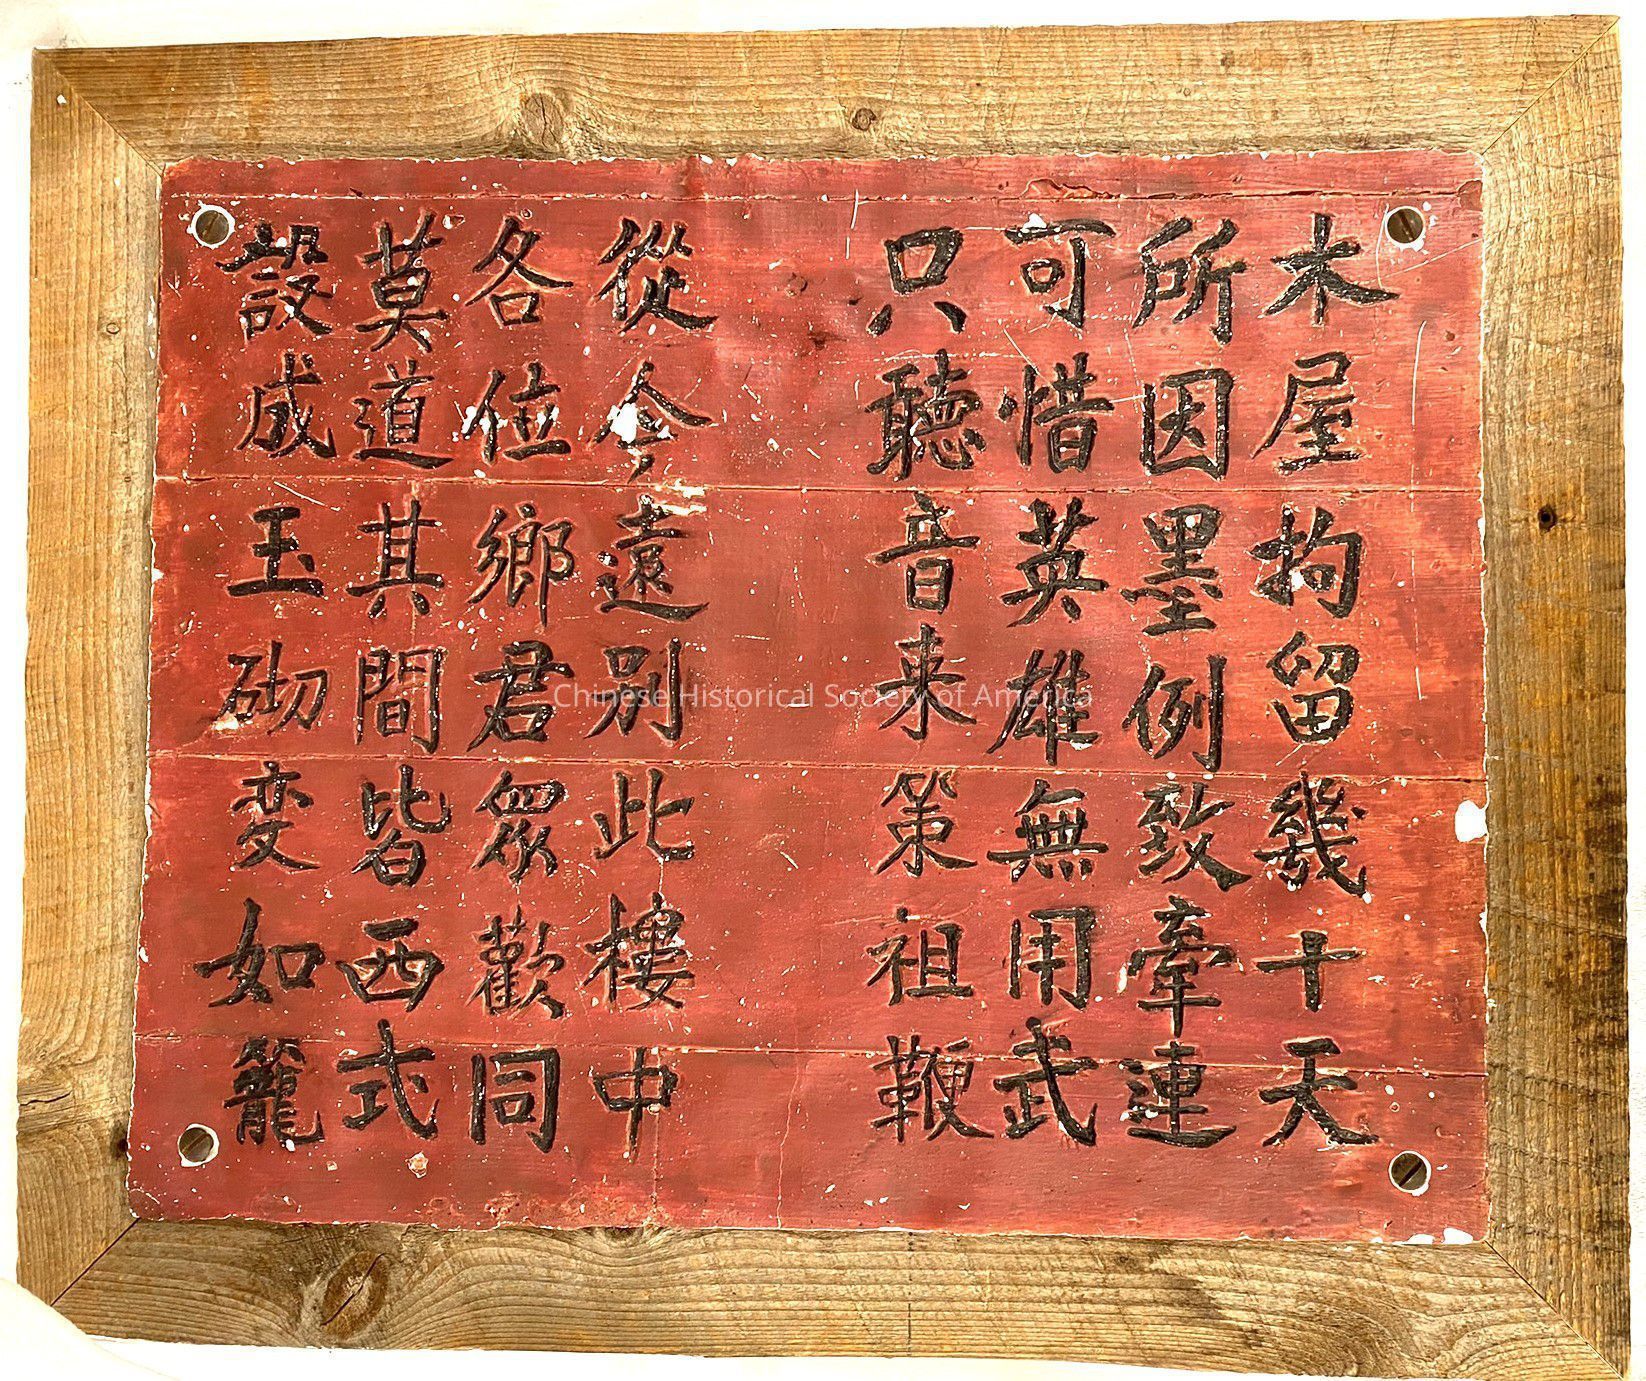 木屋拘留幾十天
所因墨例致牽連
可惜英雄無用武
只聽音来策祖鞭
從今遠別此樓中
各位鄉君眾歡同
莫道其間皆西式
設成玉砌变如籠
Chinese Historical Society of America